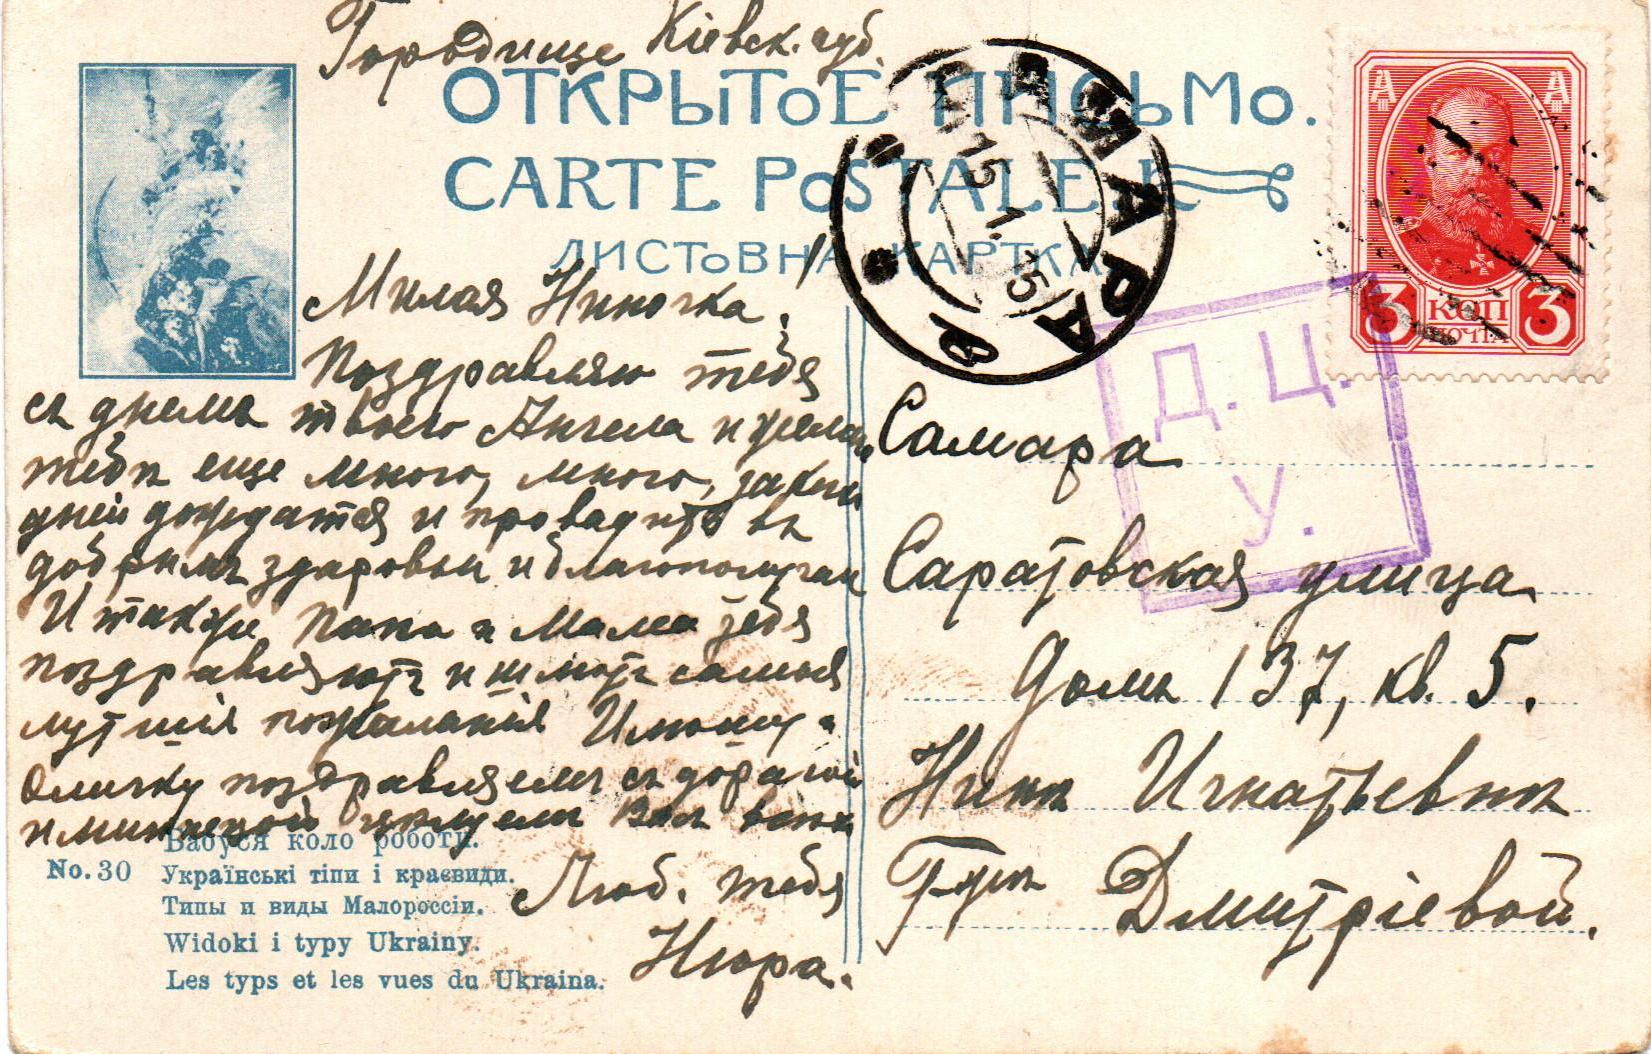 Городище Кіевск. губ.
ОТКРЫТОЕ ПИСЬМО.
CARTE POSTALE
ЛИСТОВНА КАРТКА
САМАРА
15 1. 15
А А
3 КОП 3
ПОЧТА
Д. Ц.
У.
Милая Ниночка!
Поздравляю тебя
съ днемъ твоего Ангела и желаю
тебѣ еще много, много,
дней дождатся и провадить въ
добримъ здаровьи и благополучаи
И также Папа и Мама тебя
поздравляютъ и шлють самыя
лутшія пожаланія
Оличку поздравляемъ съ дорагой
имининецой целуемъ Васъ всехъ
Люб. тебя
Нюра.
Самара
Саратовская улица
домъ 137, кв. 5.
Нинѣ Игнатьевнѣ
Дмитріевой.
Бабуся коло роботи.
No. 30 Українські тіпи і краєвиди.
Типы и виды Малороссіи.
Widoki i typy Ukrainy.
Les typs et les vues du Ukraina.